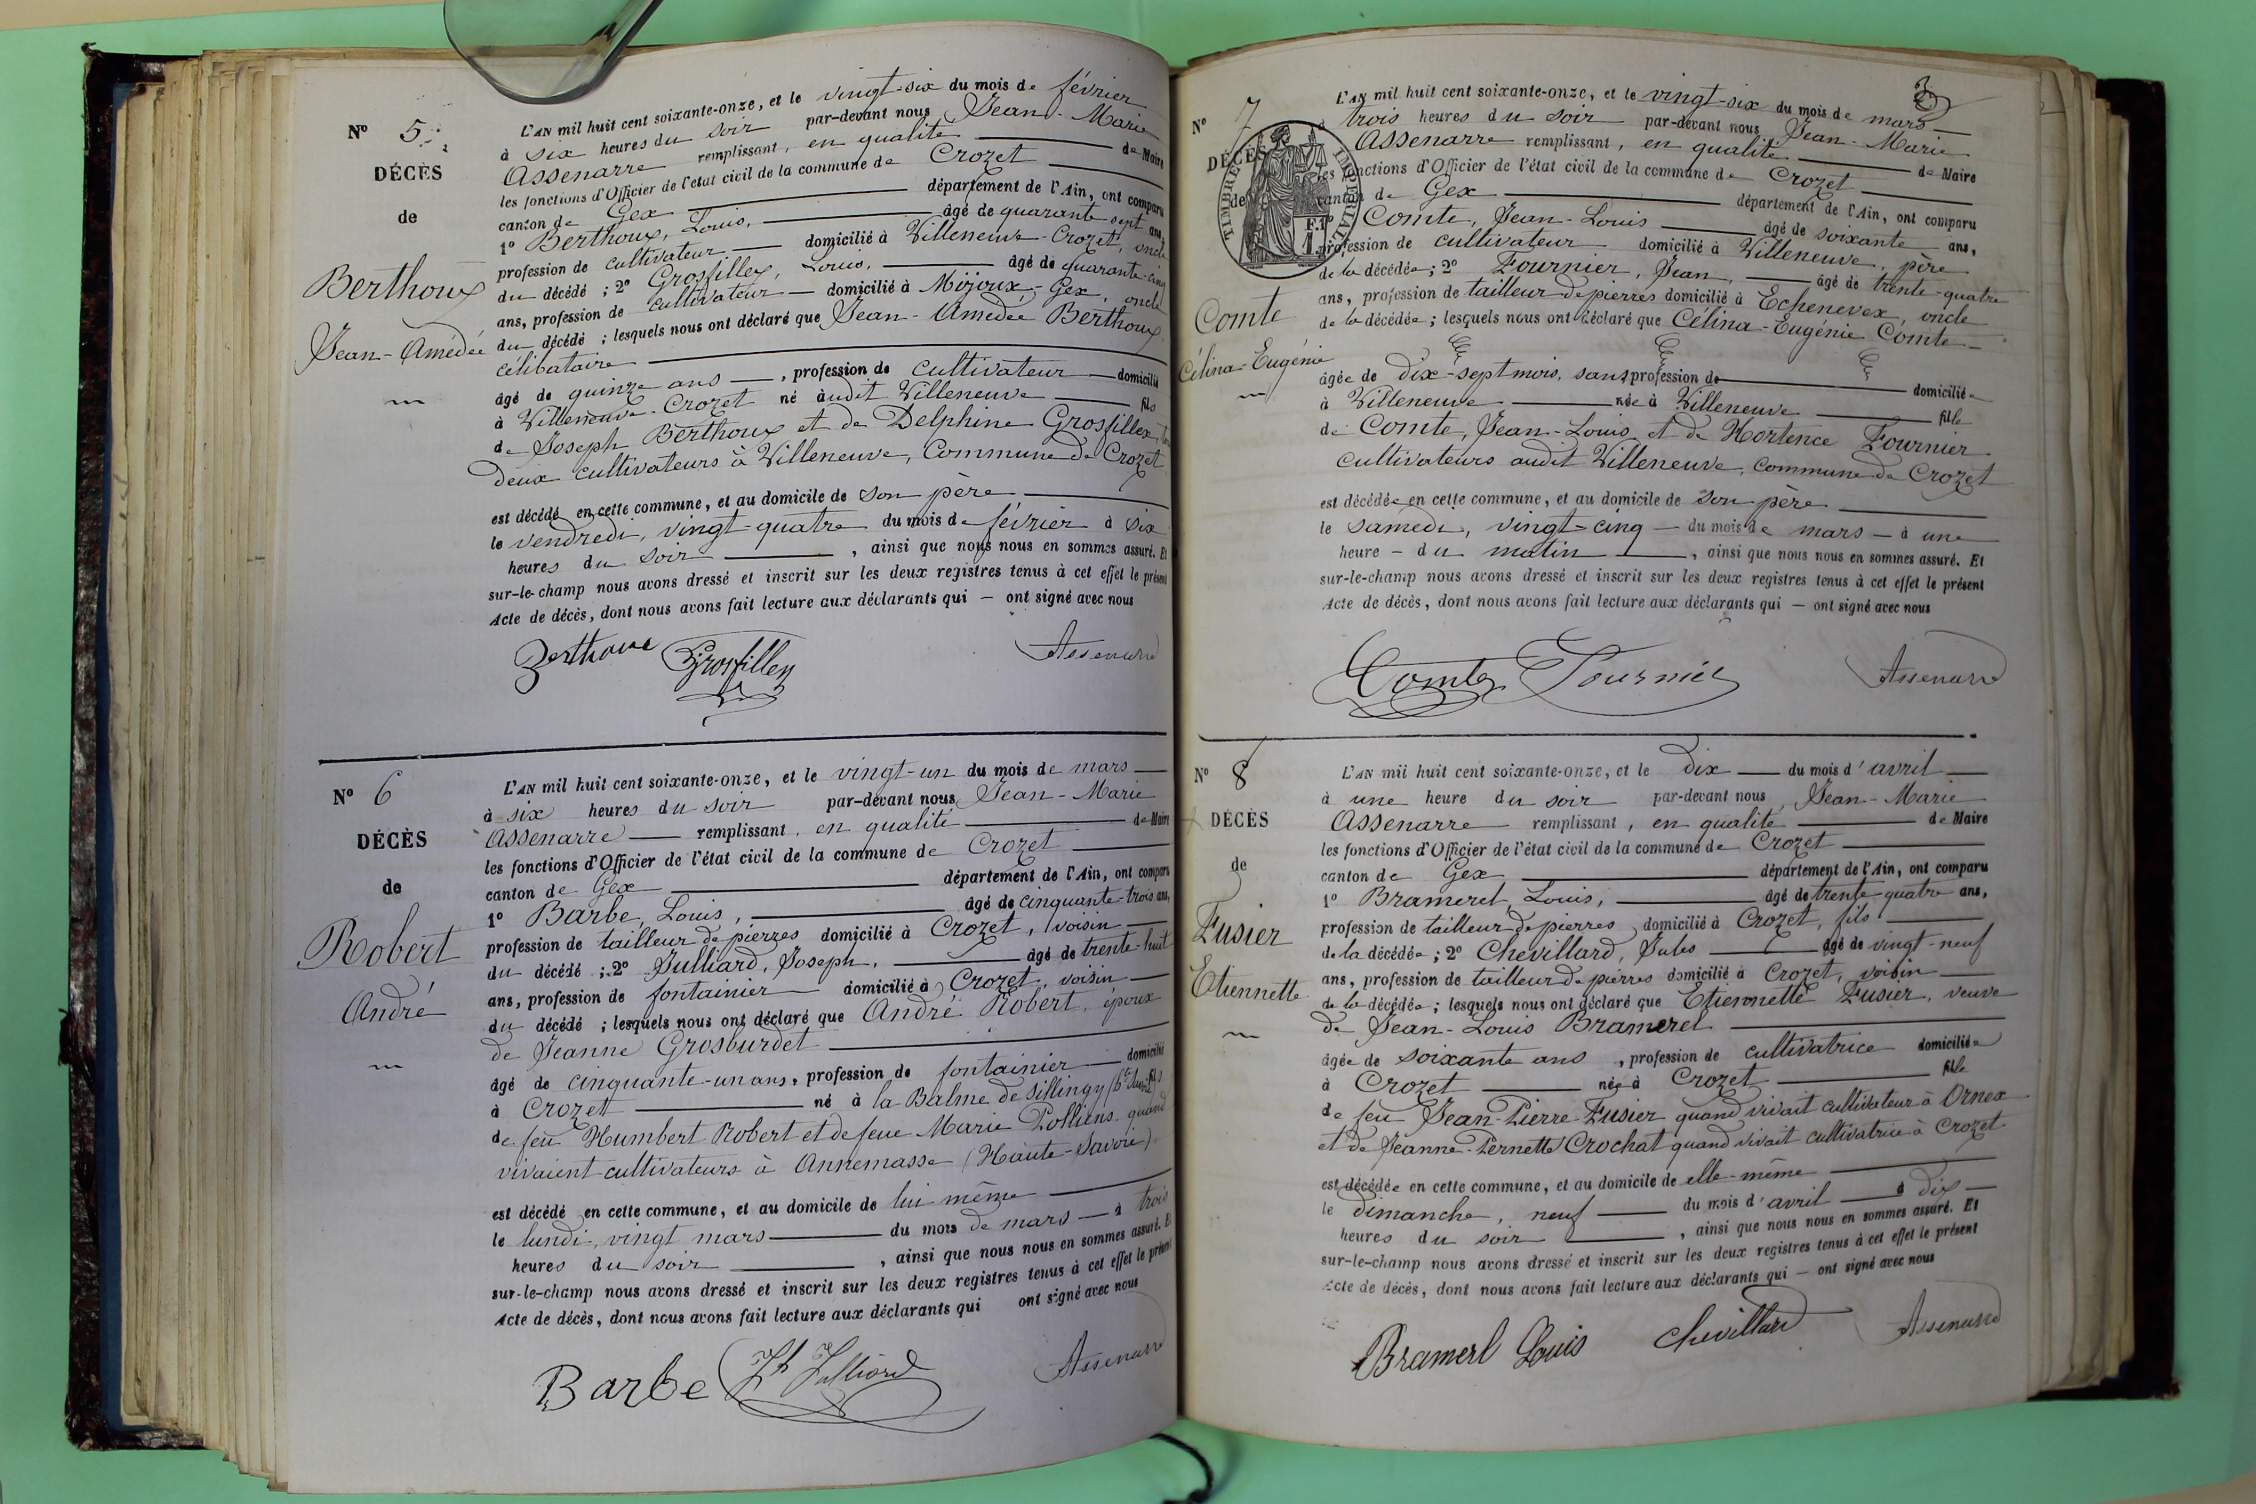 N° 5
DÉCÈS
de
Berthoux
Jean-Amédée
L'AN mil huit cent soixante-onze, et le vingt-six du mois de février
à six heures du soir par-devant nous Jean-Marie
Assenarre remplissant, en qualité de Maire
les fonctions d'Officier de l'état civil de la commune de Crozet
canton de Gex département de l'Ain, ont comparu
1° Berthoux, Louis, âgé de quarante sept ans,
profession de cultivateur domicilié à Villeneuve-Crozet, oncle
du décédé ; 2° Grosfillex, Louis, âgé de quarante-cinq
ans, profession de cultivateur domicilié à Mijoux-Gex, oncle
du décédé ; lesquels nous ont déclaré que Jean-Amédée Berthoux
célibataire
âgé de quinze ans, profession de cultivateur domicilié
à Villeneuve-Crozet né audit Villeneuve fils
de Joseph Berthoux et de Delphine Grosfillex, tous
deux cultivateurs à Villeneuve, Commune de Crozet
est décédé en cette commune, et au domicile de son père
le vendredi, vingt-quatre du mois de février à six
heures du soir, ainsi que nous nous en sommes assuré. Et
sur-le-champ nous avons dressé et inscrit sur les deux registres tenus à cet effet le présent
Acte de décès, dont nous avons fait lecture aux déclarants qui — ont signé avec nous
Berthoux Grosfillex Assenarre
N° 6
DÉCÈS
de
Robert
André
L'AN mil huit cent soixante-onze, et le vingt-un du mois de mars
à six heures du soir par-devant nous Jean-Marie
Assenarre remplissant, en qualité de Maire
les fonctions d'Officier de l'état civil de la commune de Crozet
canton de Gex département de l'Ain, ont comparu
1° Barbé, Louis, âgé de cinquante-trois ans,
profession de tailleur de pierres domicilié à Crozet, voisin
du décédé ; 2° Julliard, Joseph, âgé de trente-huit
ans, profession de fontainier domicilié à Crozet, voisin
du décédé ; lesquels nous ont déclaré que André Robert, époux
de Jeanne Grosburdet
âgé de cinquante-un ans, profession de fontainier domicilié
à Crozet né à la Balme de Sillingy fils
de feu Humbert Robert et de feue Marie Polliens quand
vivaient cultivateurs à Annemasse (Haute-Savoie)
est décédé en cette commune, et au domicile de lui même
le lundi, vingt mars du mois de mars — à trois
heures du soir, ainsi que nous nous en sommes assuré. Et
sur-le-champ nous avons dressé et inscrit sur les deux registres tenus à cet effet le présent
Acte de décès, dont nous avons fait lecture aux déclarants qui ont signé avec nous
Barbe Jh Julliard Assenarre
3
N° 7
DÉCÈS
de
TIMBRE IMPERIAL
F.1
Comte
Célina-Eugénie
L'AN mil huit cent soixante-onze, et le vingt-six du mois de mars
à trois heures du soir par-devant nous Jean-Marie
Assenarre remplissant, en qualité de Maire
les fonctions d'Officier de l'état civil de la commune de Crozet
canton de Gex département de l'Ain, ont comparu
1° Comte, Jean-Louis âgé de soixante ans,
profession de cultivateur domicilié à Villeneuve, père
de la décédée ; 2° Fournier, Jean, âgé de trente-quatre
ans, profession de tailleur de pierres domicilié à Echenevex, oncle
de la décédée ; lesquels nous ont déclaré que Célina-Eugénie Comte
âgée de dix-sept mois, sans profession de domiciliée
à Villeneuve née à Villeneuve fille
de Comte, Jean-Louis et de Hortence Fournier
cultivateurs audit Villeneuve, commune de Crozet
est décédée en cette commune, et au domicile de son père
le samedi, vingt-cinq — du mois de mars — à une
heure — du matin, ainsi que nous nous en sommes assuré. Et
sur-le-champ nous avons dressé et inscrit sur les deux registres tenus à cet effet le présent
Acte de décès, dont nous avons fait lecture aux déclarants qui — ont signé avec nous
Comte Fournier Assenarre
N° 8
DÉCÈS
de
Fusier
Etiennette
L'AN mil huit cent soixante-onze, et le dix du mois d'avril
à une heure du soir par-devant nous, Jean-Marie
Assenarre remplissant, en qualité de Maire
les fonctions d'Officier de l'état civil de la commune de Crozet
canton de Gex département de l'Ain, ont comparu
1° Brameret, Louis, âgé de trente-quatre ans,
profession de tailleur de pierres domicilié à Crozet, fils
de la décédée ; 2° Chevillard, Jules âgé de vingt-neuf
ans, profession de tailleur de pierres domicilié à Crozet, voisin
de la décédée ; lesquels nous ont déclaré que Etiennette Fusier, veuve
de Jean-Louis Brameret
âgée de soixante ans, profession de cultivatrice domiciliée
à Crozet née à Crozet fille
de feu Jean-Pierre Fusier quand vivait cultivateur à Ornex
et de Jeanne-Pernette Crochat quand vivait cultivatrice à Crozet
est décédée en cette commune, et au domicile de elle-même
le dimanche, neuf du mois d'avril à dix
heures du soir, ainsi que nous nous en sommes assuré. Et
sur-le-champ nous avons dressé et inscrit sur les deux registres tenus à cet effet le présent
Acte de décès, dont nous avons fait lecture aux déclarants qui — ont signé avec nous
Bramerl Louis Chevillard Assenarre